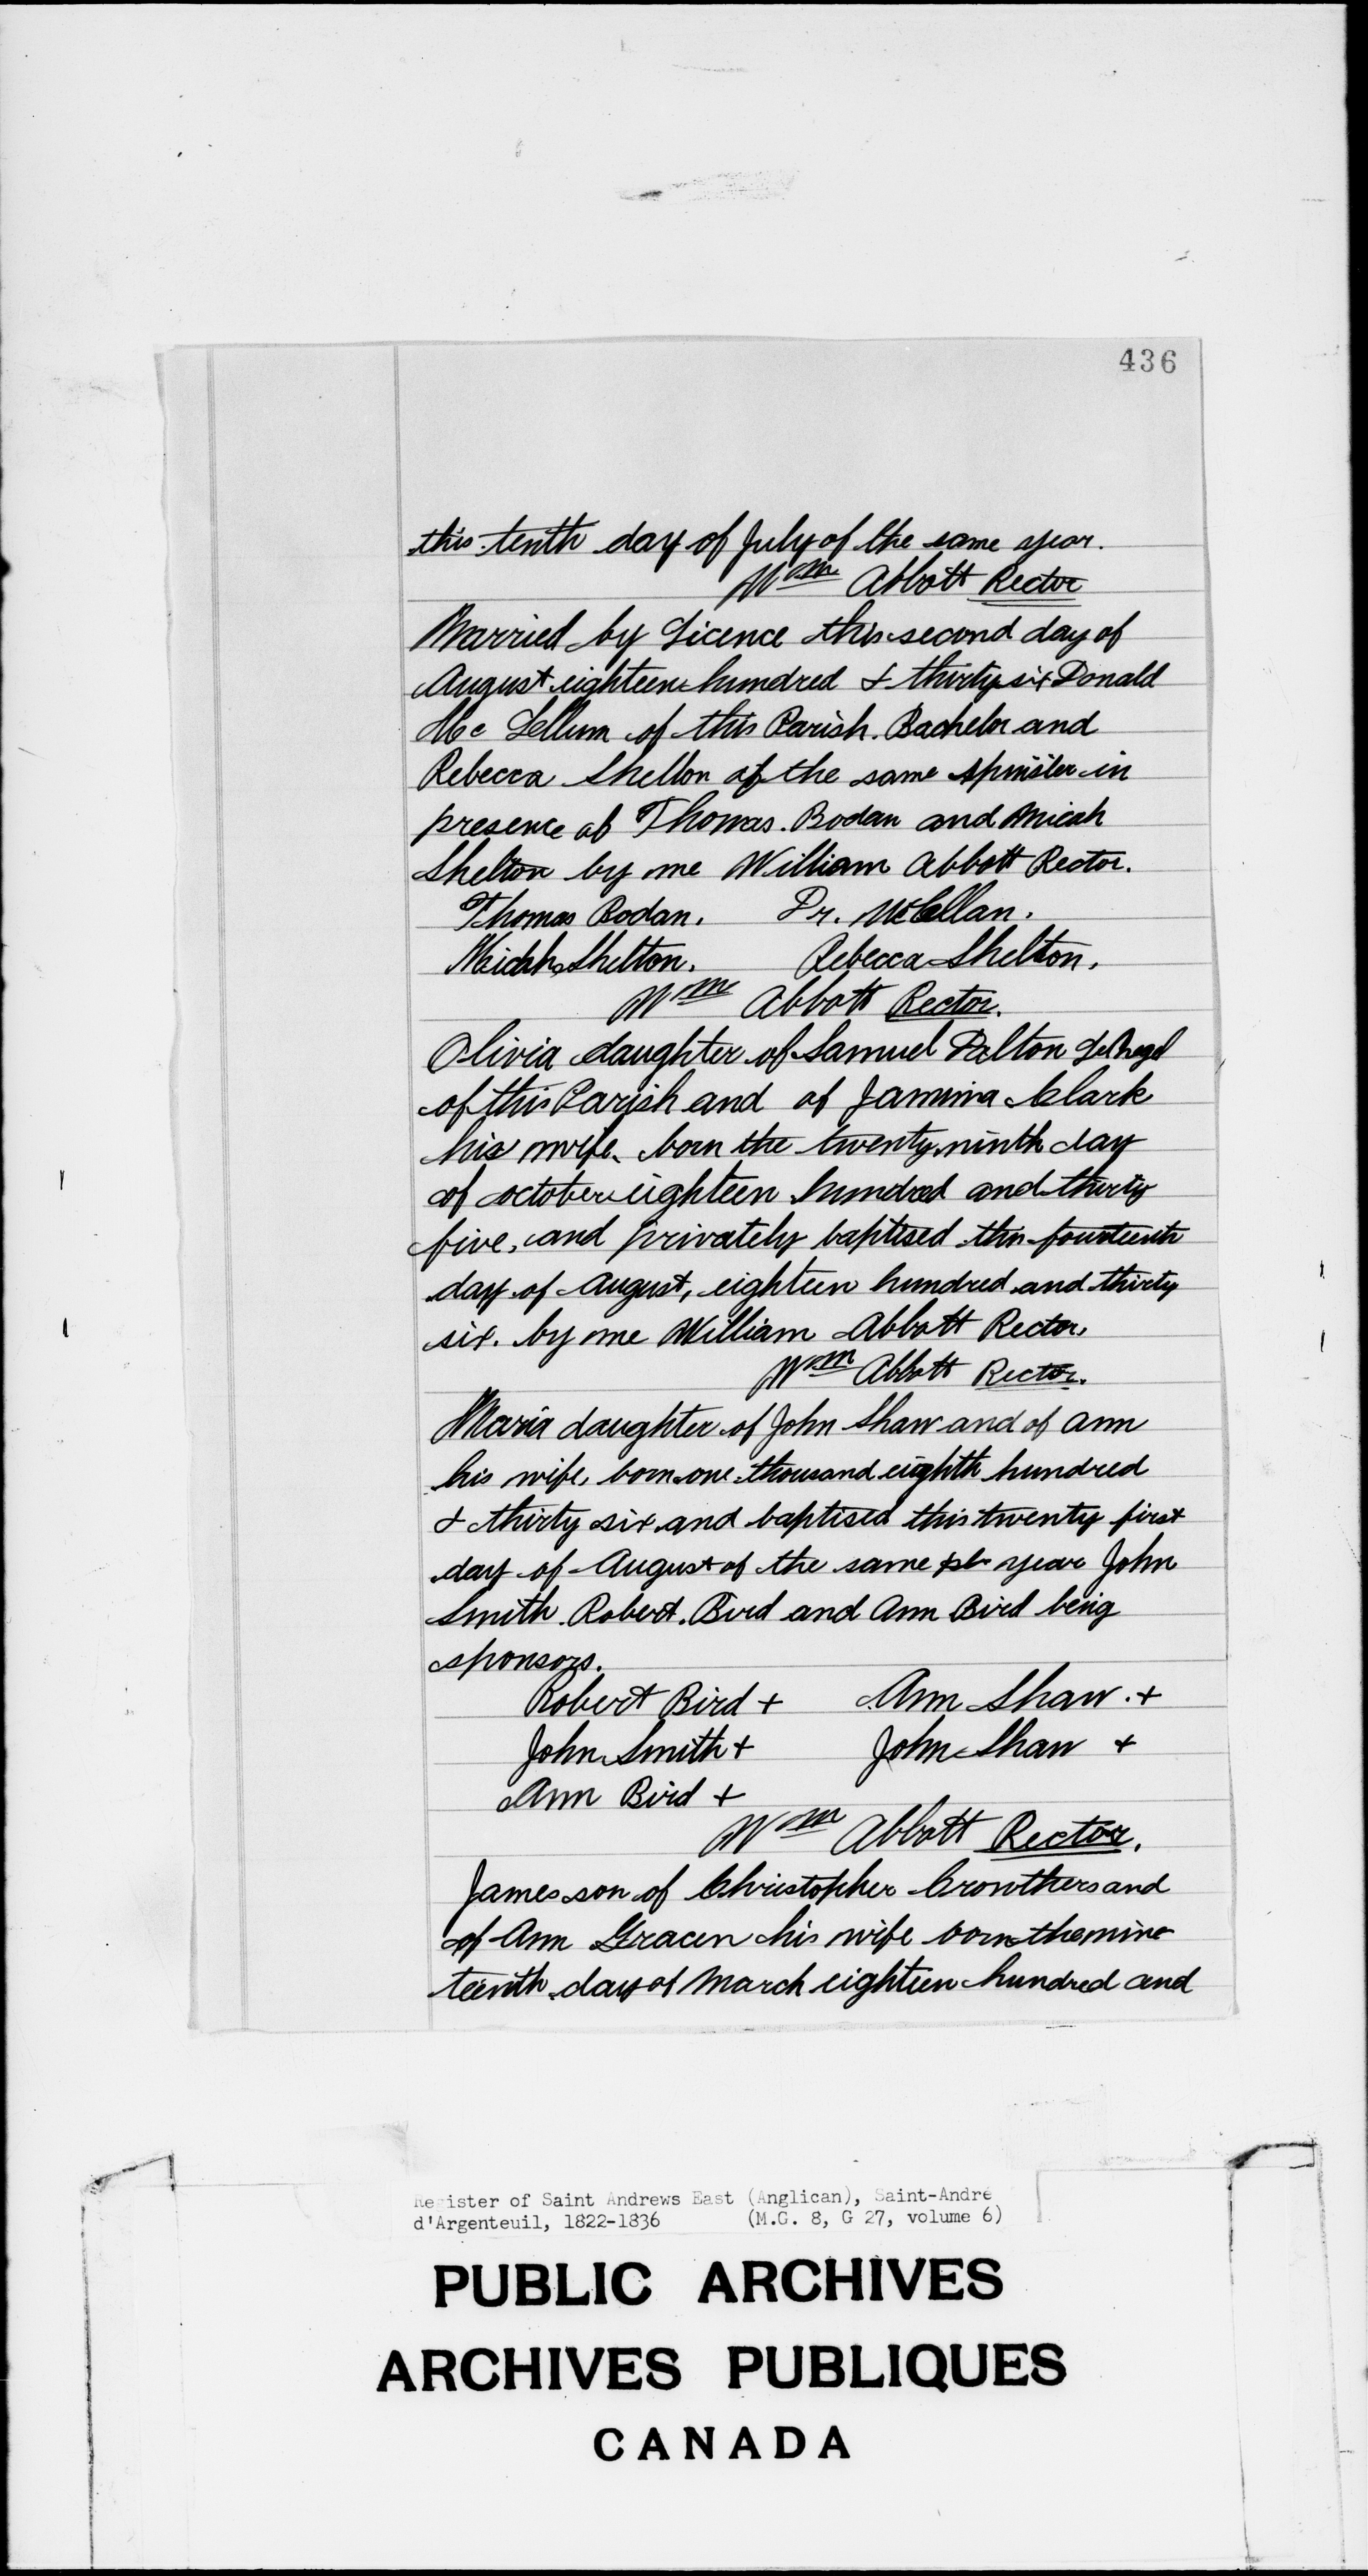 436
this tenth day of July of the same year.
Wm Abbott Rector
Married by Licence this second day of
August eighteen hundred & thirty six Donald
Mc Lellum of this Parish. Bachelor and
Rebecca Shelton of the same spinster in
presence of Thomas. Bodan and Micah
Shelton by me William Abbott Rector.
Thomas Bodan. Dr. McLellan.
Micah Shelton. Rebecca Shelton.
Wm Abbott Rector.
Olivia daughter of Samuel Dalton
of this Parish and of Jamima Clark
his wife. born the twenty ninth day
of october eighteen hundred and thirty
five, and privately baptised this fourteenth
day of August, eighteen hundred and thirty
six. by me William Abbott Rector.
Wm Abbott Rector.
Maria daughter of John Shaw and of Ann
his wife, born one thousand eighth hundred
& thirty six and baptised this twenty first
day of August of the same year John
Smith. Robert. Bird and Ann Bird being
sponsors.
Robert Bird + Ann Shaw. +
John Smith + John Shaw +
Ann Bird +
Wm Abbott Rector.
James son of Christopher Crowthers and
of Ann Gracen his wife born the nine
teenth day of March eighteen hundred and
Register of Saint Andrews East (Anglican), Saint-André
d'Argenteuil, 1822-1836 (M.G. 8, G 27, volume 6)
PUBLIC ARCHIVES
ARCHIVES PUBLIQUES
CANADA